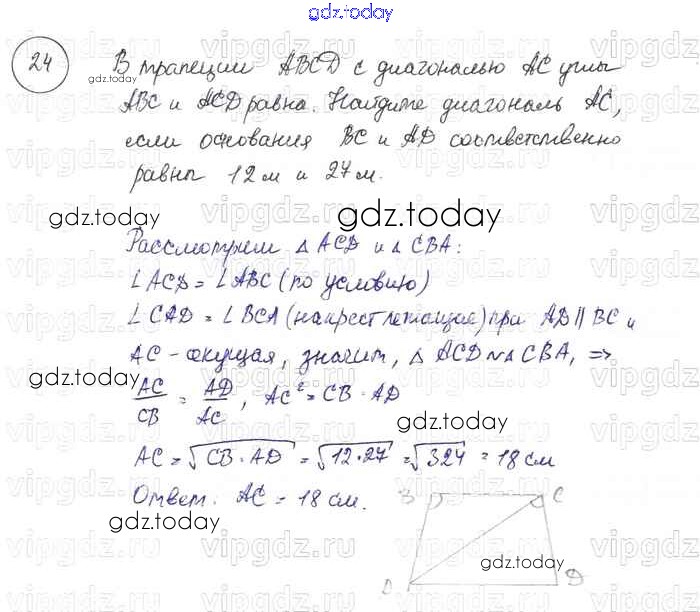 gdz.today
24
В трапеции ABCD с диагональю AC углы
gdz.today
ABC и ACD равна. Найдите диагональ AC,
если основания BC и AD соответственно
равны 12 м и 27 м.
gdz.today
gdz.today
Рассмотрем △ ACD и △ CBA:
∠ACD = ∠ABC (по условию)
∠CAD = ∠BCA (накрест лежащие) при AD ∥ BC и
AC - секущая, значит, △ ACD ∾ △ CBA, =>
gdz.today
AC/CB = AD/AC, AC² = CB · AD
gdz.today
AC = √CB · AD = √12·27 = √324 = 18 см
Ответ. AC = 18 см.
gdz.today
B C
gdz.today
D
vipgdz.ru